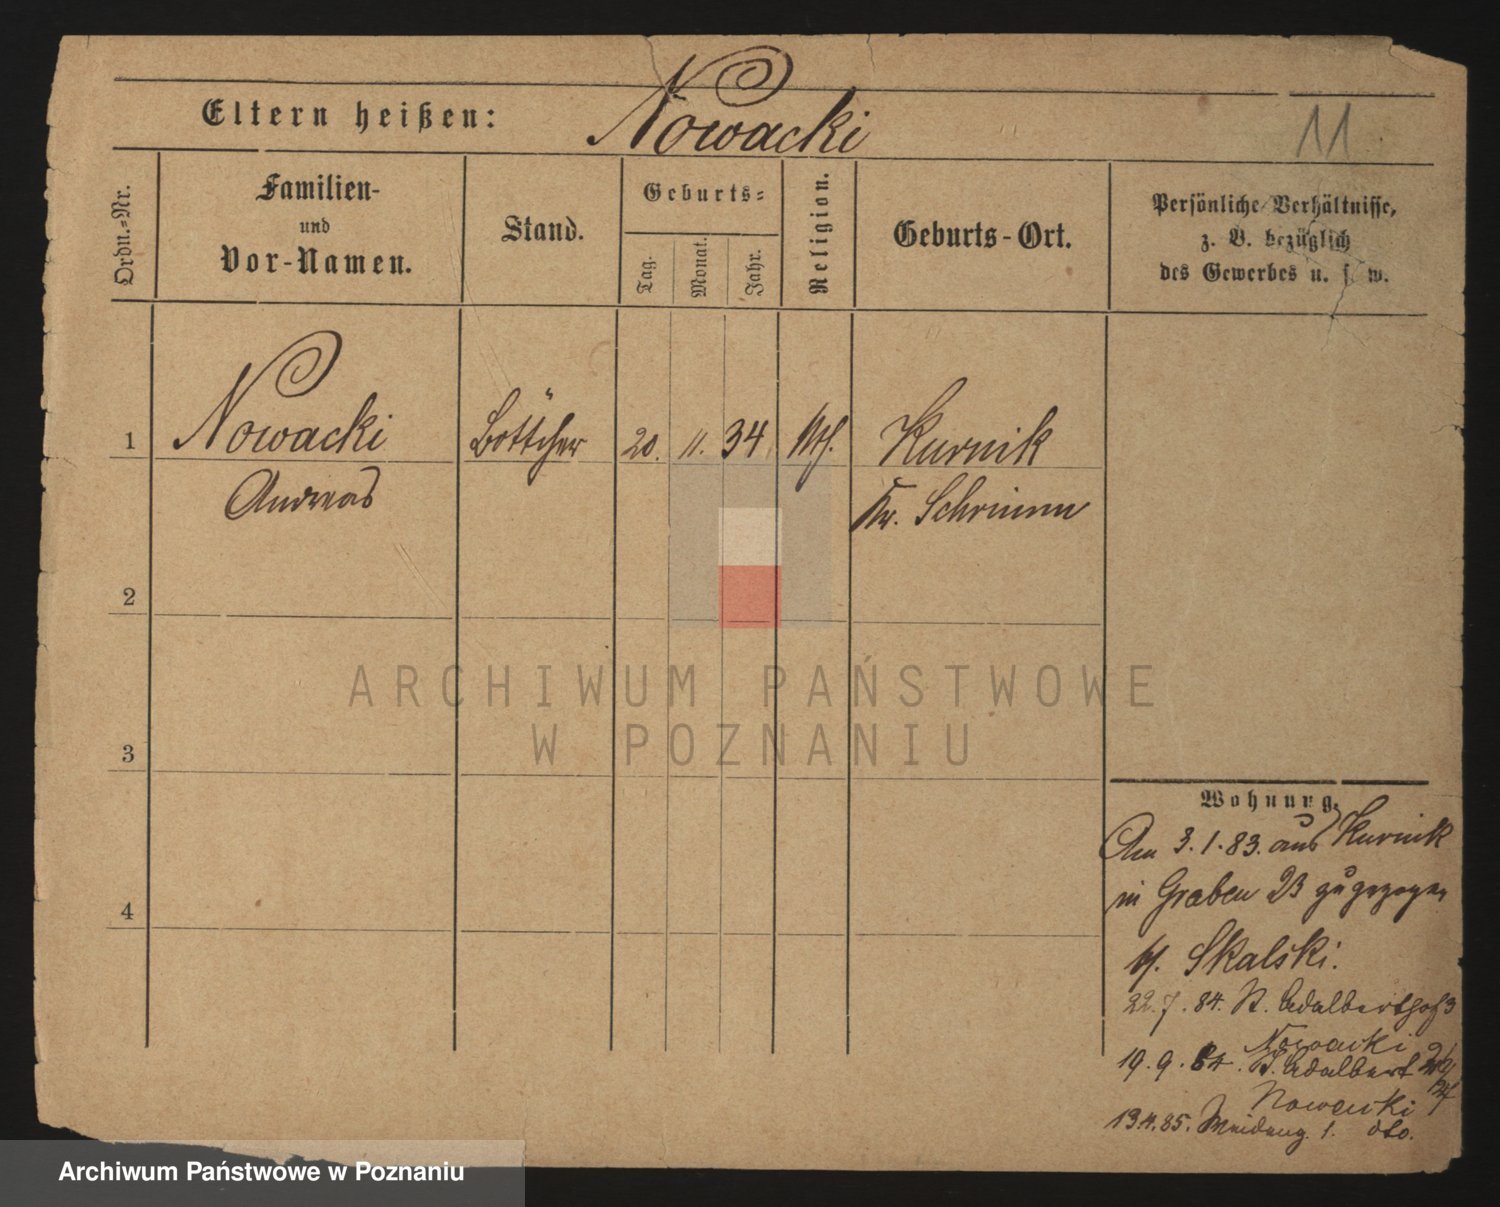 Eltern heißen: Nowacki
11
Ordn.-Nr.
Familien-
und
Vor-Namen.
Stand.
Geburts-
Tag.
Monat.
Jahr.
Religion.
Geburts-Ort.
Persönliche Verhältnisse,
z. B. bezüglich
des Gewerbes u. s. w.
1 Nowacki Böttcher 20. 11. 34 Kurnik
Andreas Kr. Schrimm
2
3
4
ARCHIWUM PAŃSTWOWE
W POZNANIU
Wohnung.
Am 3.1.83. aus Kurnik
in Graben 23 zugezogen
b/. Skalski.
22.7.84. St. Adalberthof 3
Nowacki
19.9.84. St. Adalbert
Nowacki
13.4.85. 1. dto.
Archiwum Państwowe w Poznaniu